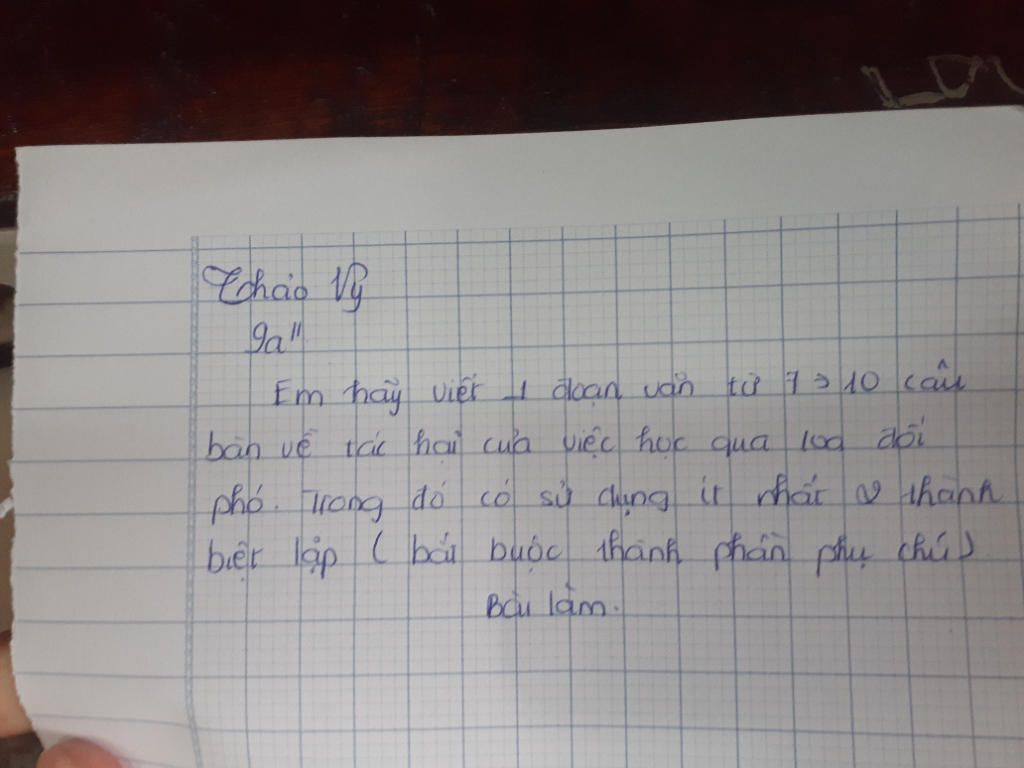 Thảo Vy
9a"
Em hãy viết 1 đoạn văn từ 7 → 10 câu
bàn về tác hại của việc học qua loa đối
phó. Trong đó có sử dụng ít nhất 2 thành
biệt lập ( bắt buộc thành phần phụ chú)
Bài làm.